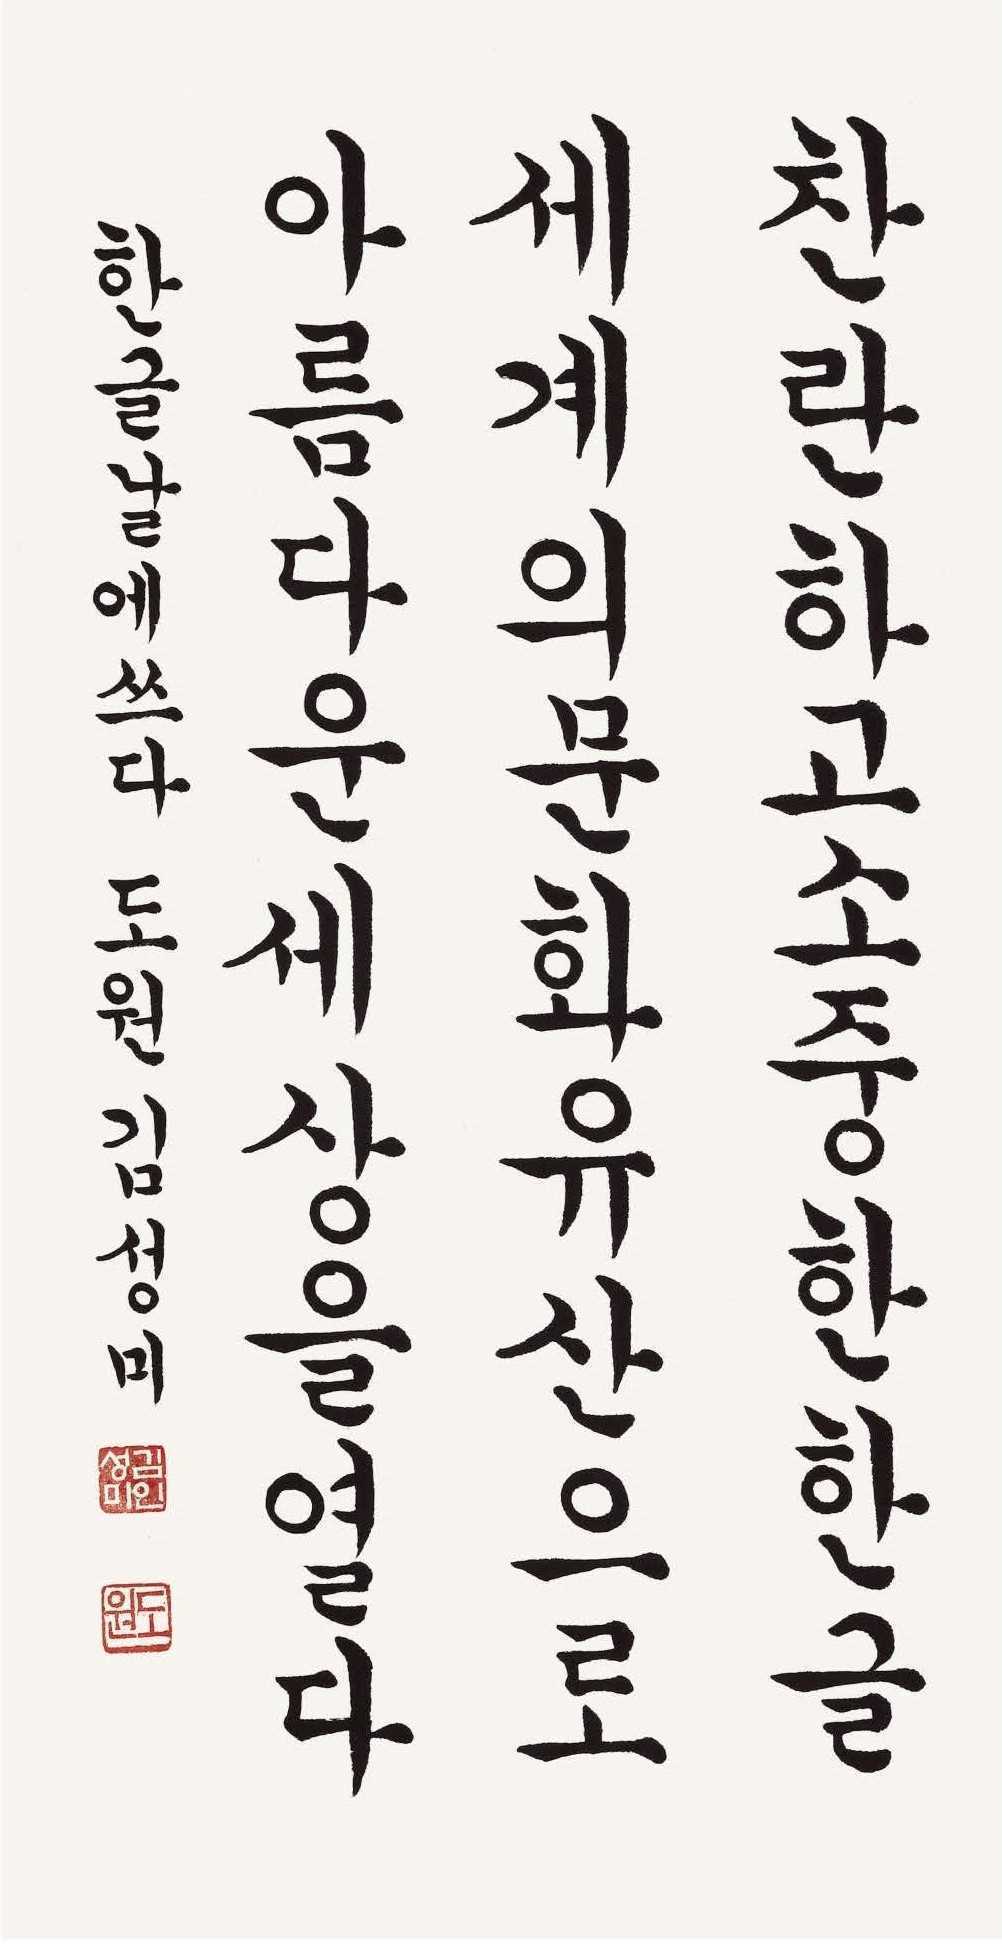 찬란하고소중한한글
세계의문화유산으로
아름다운세상을열다
한글날에쓰다 도원 김성미
김성미인
도원